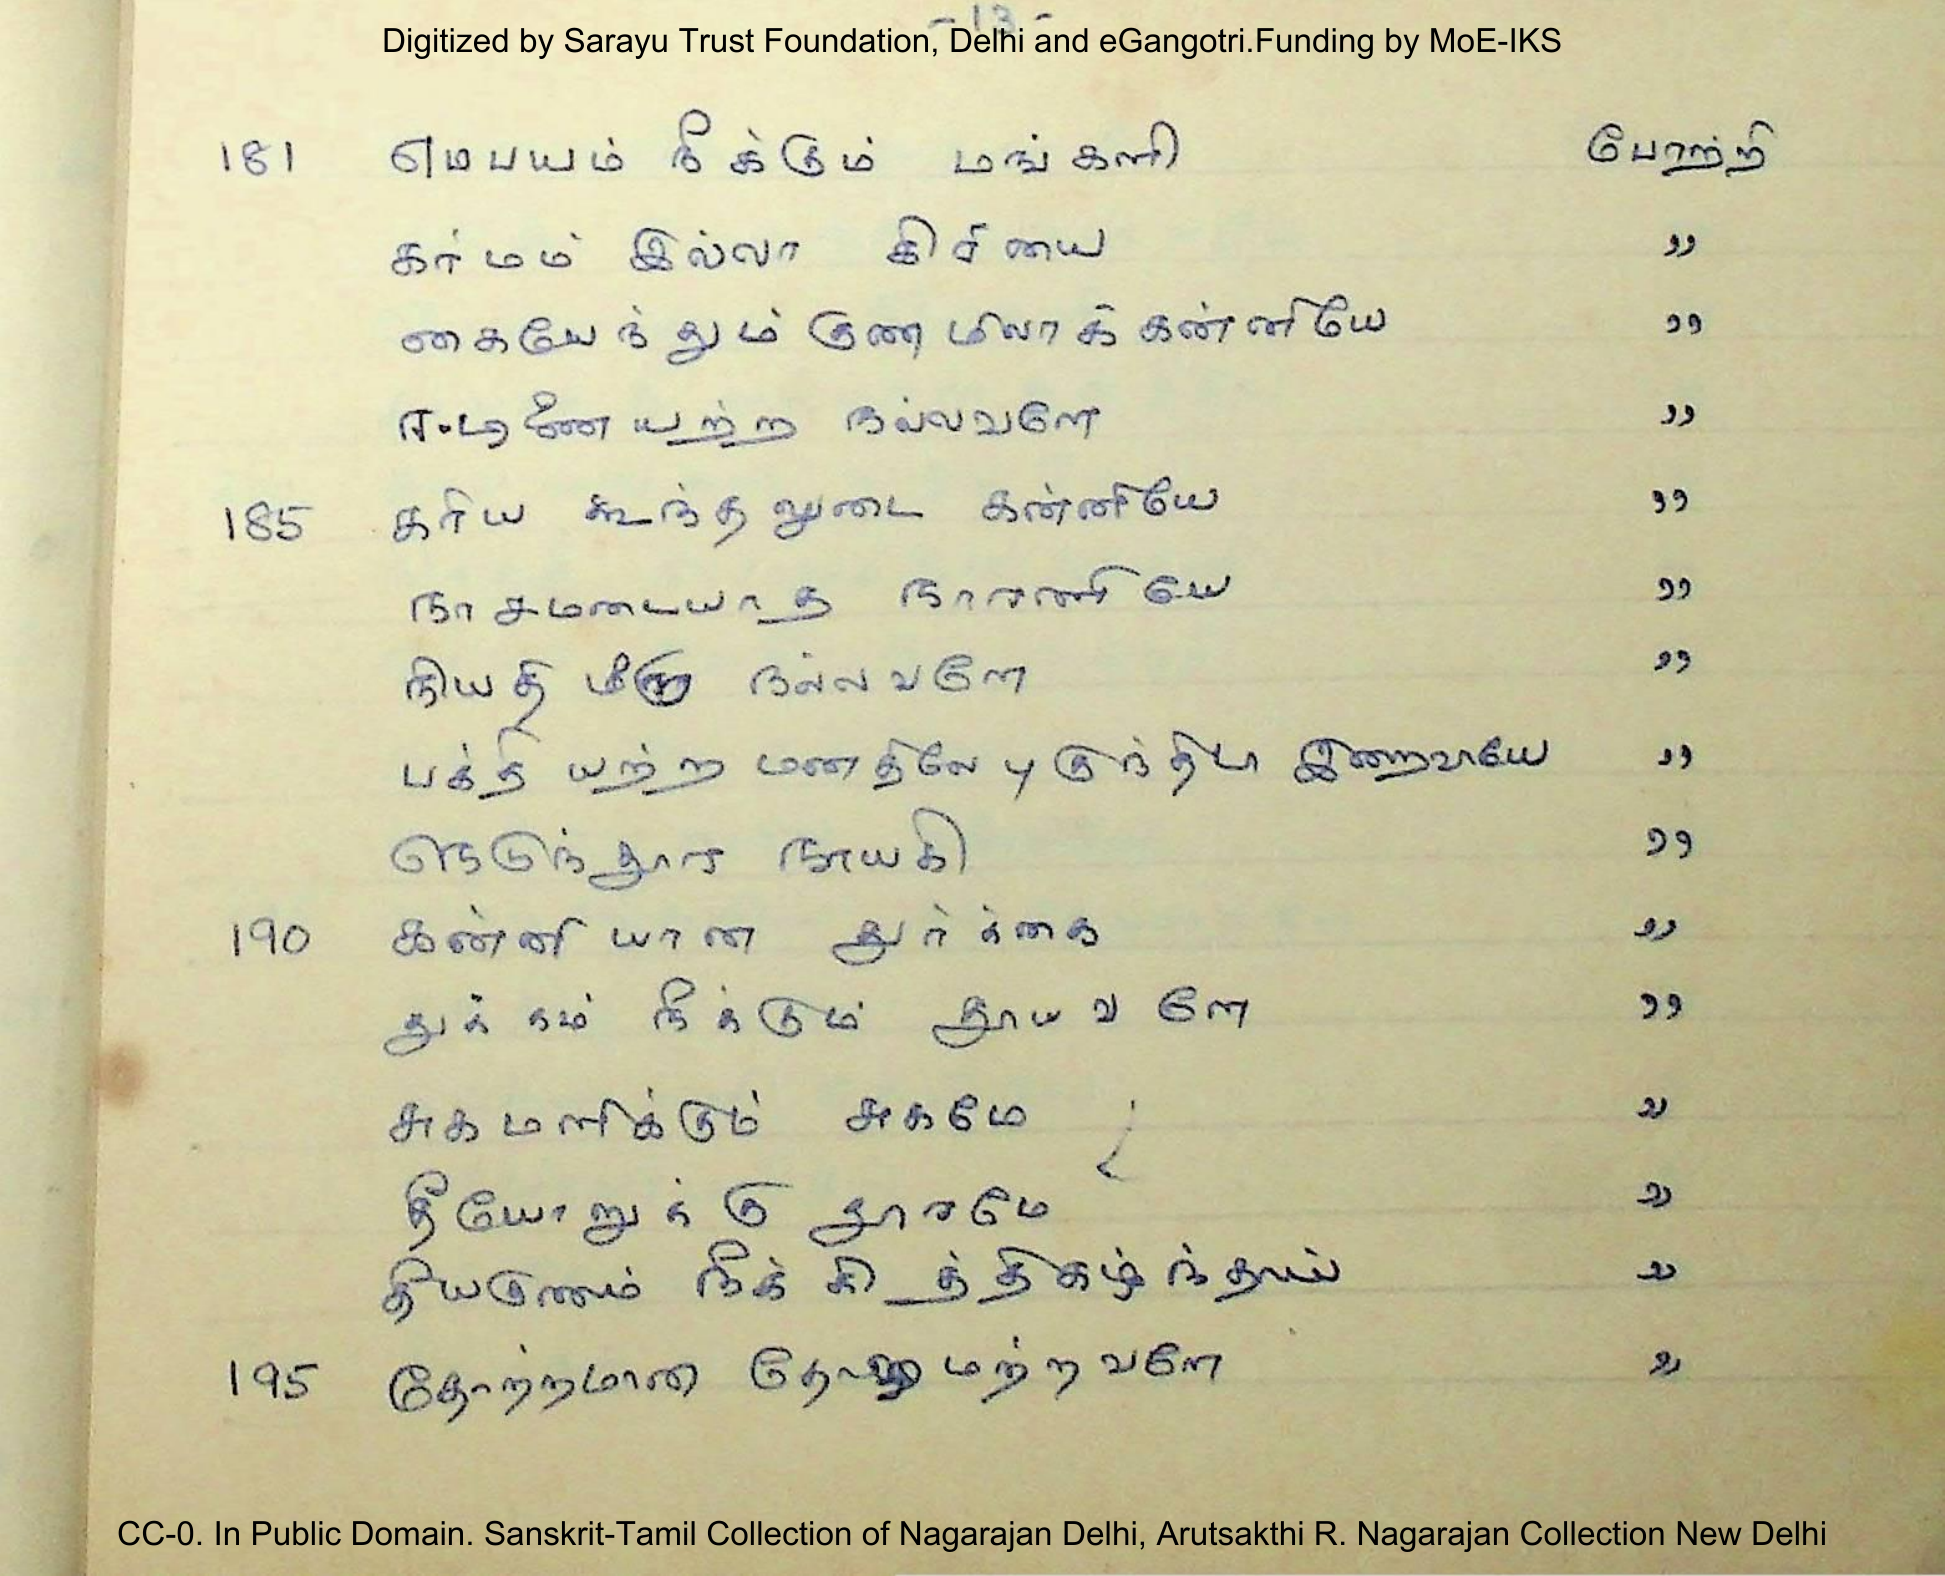 - 13 -
Digitized by Sarayu Trust Foundation, Delhi and eGangotri.Funding by MoE-IKS
181 எமபயம் நீக்கும் மங்களி போற்றி
கர்மம் இல்லா கிரியை ,,
கையேந்தும் குணமிலாக் கன்னியே ,,
ஈடிணையற்ற நல்லவளே ,,
185 கரிய கூந்தலுடை கன்னியே ,,
நாசமடையாத நாரணியே ,,
நியதி மீறு நல்லவளே ,,
பக்தி யற்ற மனதிலே புகுந்திடா இறைவாயே ,,
நெடுந்தூர நாயகி ,,
190 கன்னியான துர்க்கை ,,
துக்கம் நீக்கும் தூயவளே ,,
சுகமளிக்கும் சுகமே ,,
தீயோறுக்கு தூரமே ,,
தீயகுணம் நீக்கித்திகழ்ந்தாய் ,,
195 தோற்றமான மற்றவளே ,,
CC-0. In Public Domain. Sanskrit-Tamil Collection of Nagarajan Delhi, Arutsakthi R. Nagarajan Collection New Delhi